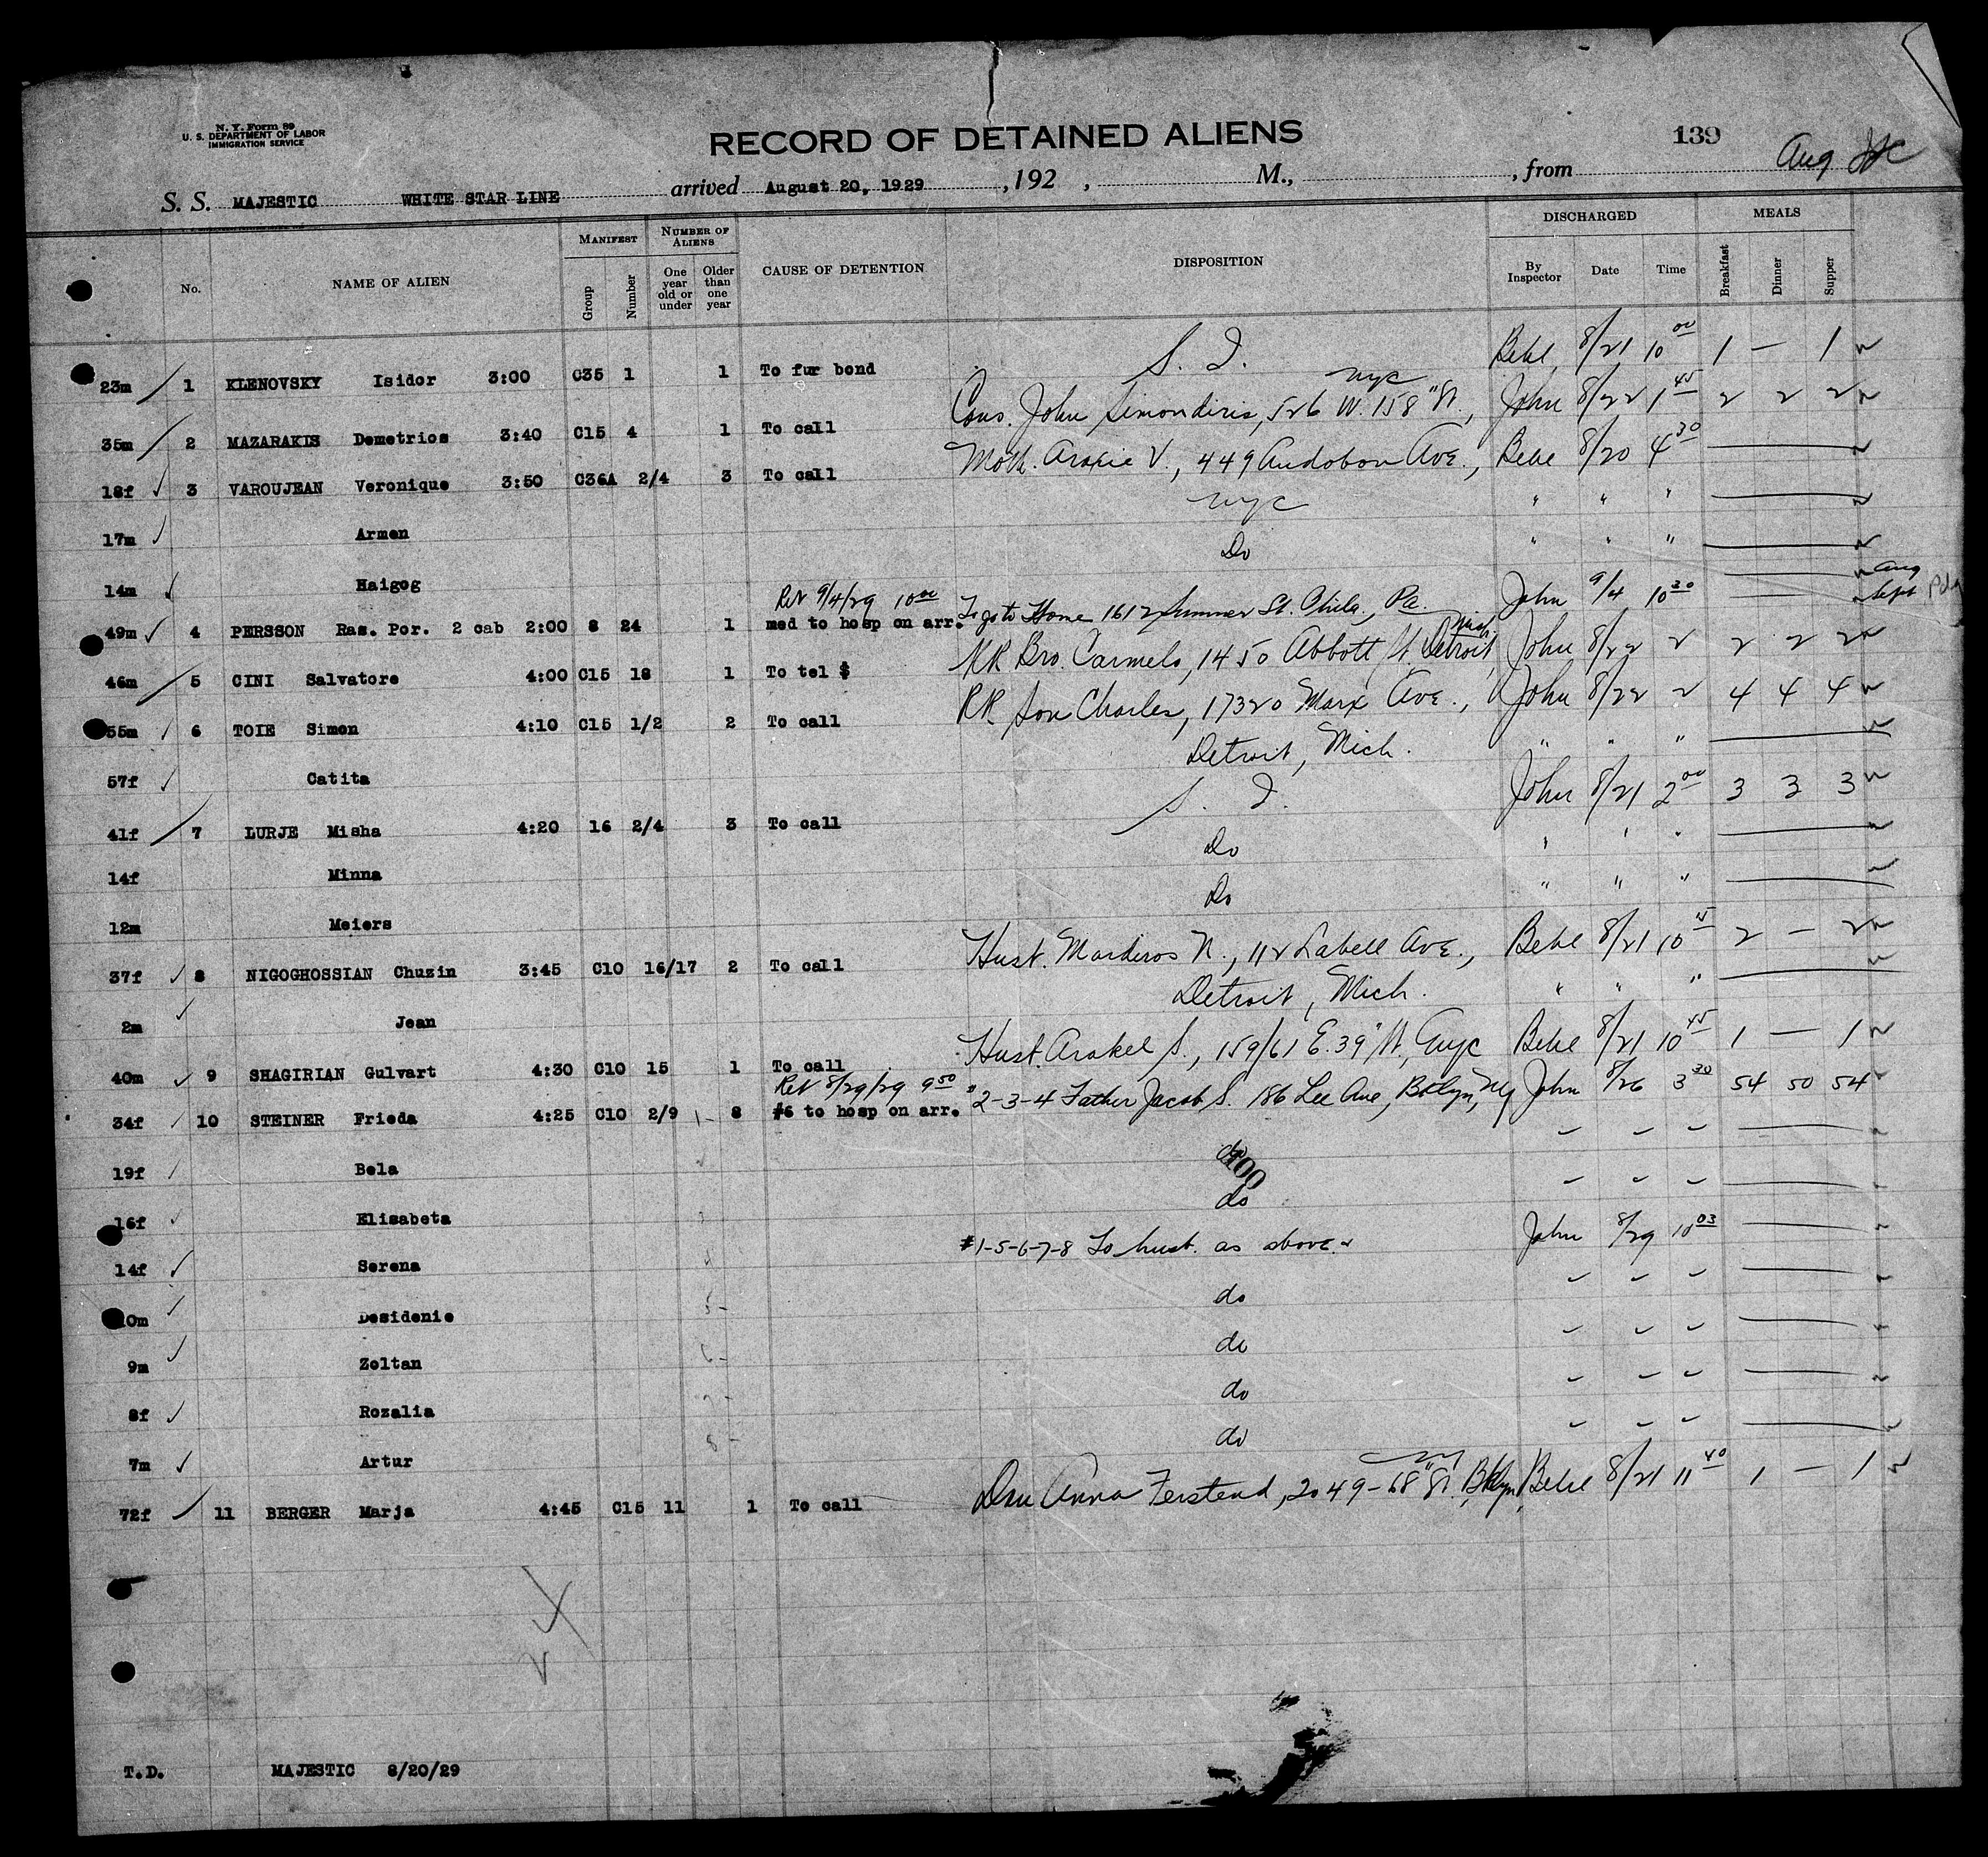 N. Y. Form 89
U. S. DEPARTMENT OF LABOR
IMMIGRATION SERVICE
RECORD OF DETAINED ALIENS
139
Aug
S. S. MAJESTIC WHITE STAR LINE arrived August 20, 1929, 192 , M., , from
No. NAME OF ALIEN MANIFEST NUMBER OF ALIENS CAUSE OF DETENTION DISPOSITION DISCHARGED MEALS
Group Number One year old or under Older than one year By Inspector Date Time Breakfast Dinner Supper
23m 1 KLENOVSKY Isidor 3:00 C35 1 1 To fur bond S. I. 8/21 10 00 1 — 1
nyc
35m 2 MAZARAKIS Demetrios 3:40 C15 4 1 To call Cous. John Simondiris, 526 W. 158" St., John 8/22 1 45 2 2 2
18f 3 VAROUJEAN Veronique 3:50 C36A 2/4 3 To call Moth. Araxie V., 449 Audobon Ave., 8/20 4 30
17m Armen nyc " " "
14m Haigog Do " " "
Ret 9/4/29 10 00
Aug
Sept
49m 4 PERSSON Ras. Por. 2 cab 2:00 8 24 1 med to hosp on arr. To go to Home 1612 Summer St. Phila., Pa. John 9/4 10 30
46m 5 CINI Salvatore 4:00 C15 18 1 To tel $ RR Bro. Carmelo, 1450 Abbott St. Detroit, Mich John 8/22 2 2 2 2
55m 6 TOIE Simon 4:10 C15 1/2 2 To call RR Son Charles, 17320 Marx Ave., John 8/22 2 4 4 4
57f Catita Detroit, Mich. " " "
41f 7 LURJE Misha 4:20 16 2/4 3 To call S. I. John 8/21 2 00 3 3 3
14f Minna Do " " "
12m Meiers Do " " "
37f 8 NIGOGHOSSIAN Chuzin 3:45 C10 16/17 2 To call Husb. Mardiros N., 112 Labell Ave., 8/21 10 45 2 — 2
2m Jean Detroit, Mich. " " "
40m 9 SHAGIRIAN Gulvart 4:30 C10 15 1 To call Husb. Arakel S., 159/61 E. 39" St., nyc 8/21 10 45 1 — 1
Ret 8/29/29 9 50
34f 10 STEINER Frieda 4:25 C10 2/9 1- 8 #6 to hosp on arr. #2-3-4 Father Jacob S. 186 Lee Ave, Bklyn, Ny John 8/26 3 30 54 50 54
19f Bela do
16f Elisabeta do
14f Serena #1-5-6-7-8 To husb. as above. John 8/29 10 03
10m Desidenie 5- do
9m Zoltan 6- do
8f Rozalia 7- do
7m Artur 8- do
72f 11 BERGER Marja 4:45 C15 11 1 To call Dau Anna Ferstend, 2049-68" St. Bklyn, 8/21 11 40 1 — 1
T.D. MAJESTIC 8/20/29